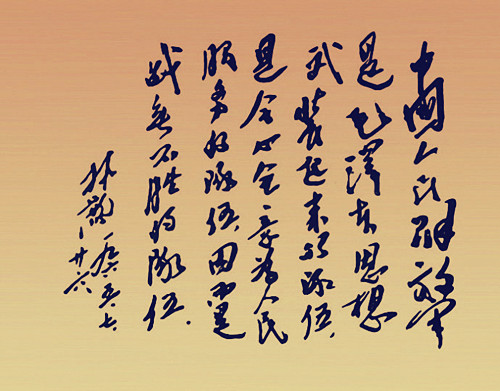 中國人民解放军
是毛澤东思想
武装起来的队伍、
是全心全意为人民
服务的队伍、因而是
战无不胜的队伍、
林彪 一九六五、七、
廿六